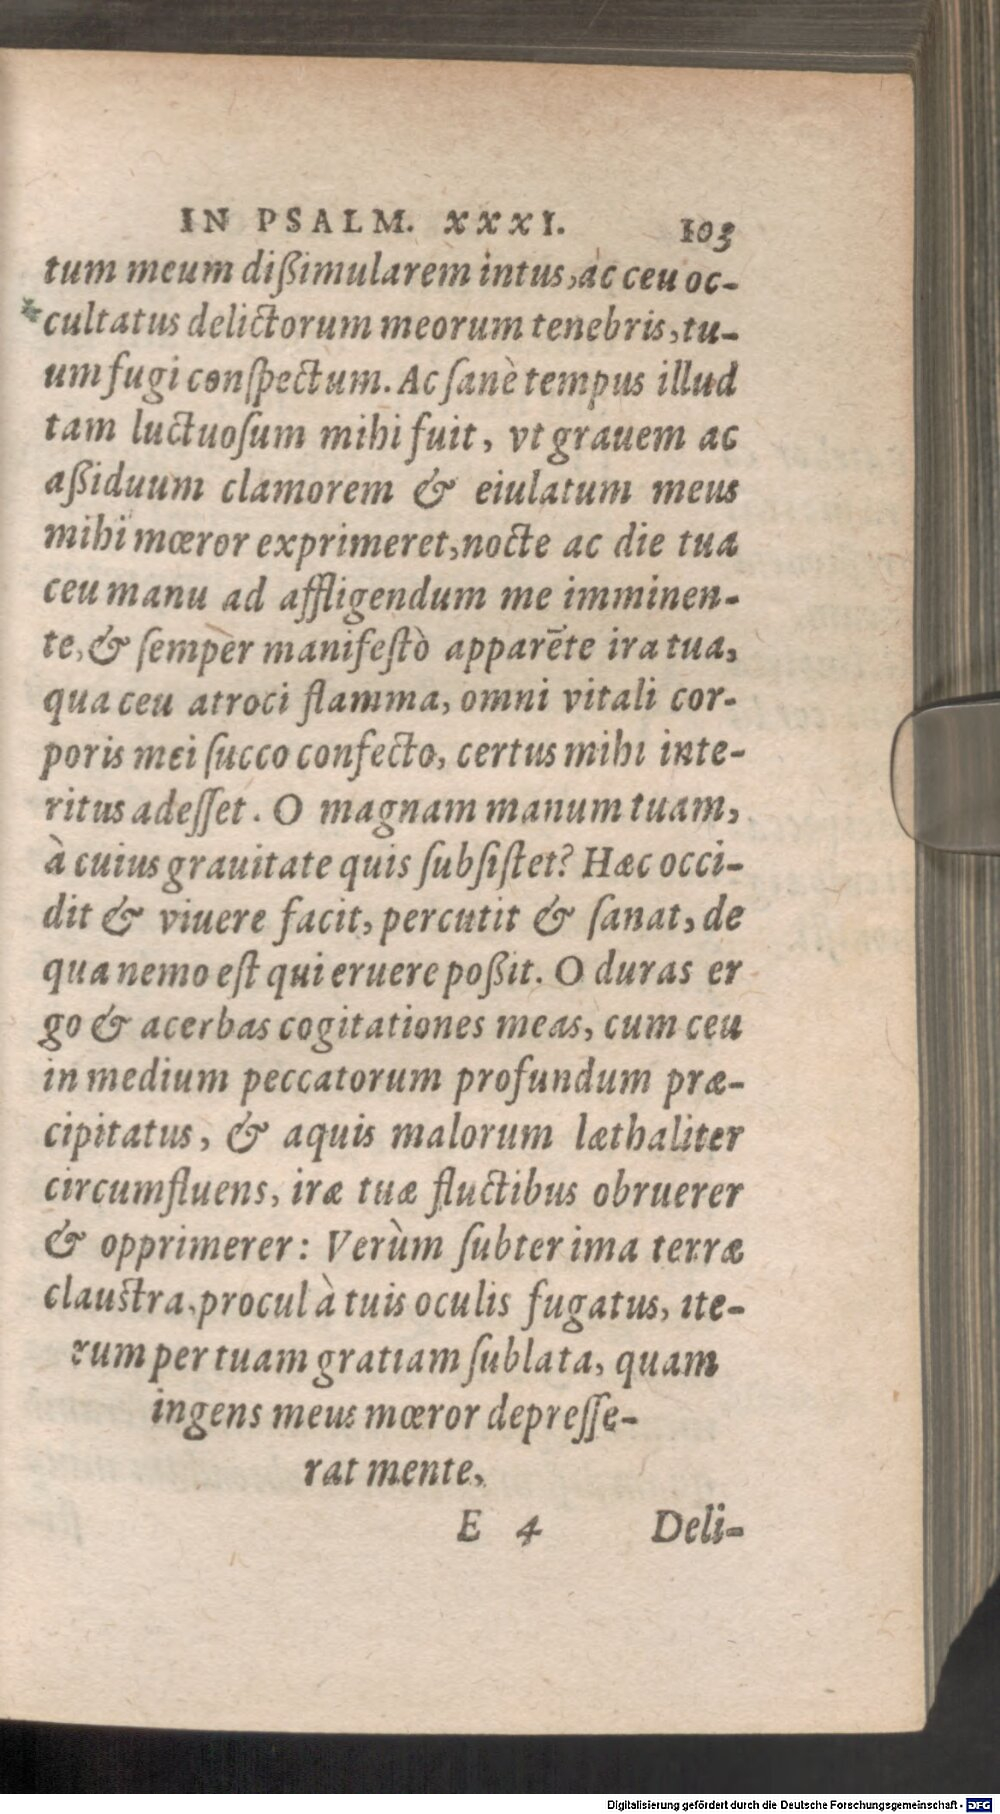 IN PSALM. XXXI. 103
tum meum dißimularem intus, ac ceu oc-
cultatus delictorum meorum tenebris, tu-
um fugi conſpectum. Ac ſanè tempus illud
tam luctuoſum mihi fuit, vt grauem ac
aßiduum clamorem & eiulatum meus
mihi mœror exprimeret, nocte ac die tua
ceu manu ad affligendum me imminen-
te, & ſempèr manifeſtò apparēte ira tua,
qua ceu atroci flamma, omni vitali cor-
poris mei ſucco confecto, certus mihi inte-
ritus adeſſet. O magnam manum tuam,
à cuius grauitate quis ſubſiſtet? Hæc occi-
dit & viuere facit, percutit & ſanat, de
qua nemo eſt qui eruere poßit. O duras er
go & acerbas cogitationes meas, cum ceu
in medium peccatorum profundum præ-
cipitatus, & aquis malorum læthaliter
circumfluens, iræ tuæ fluctibus obruerer
& opprimerer: Verùm ſubter ima terræ
clauſtra, procul à tuis oculis fugatus, ite-
rum per tuam gratiam ſublata, quam
ingens meus mœror depreſſe-
rat mente,
E 4 Deli-
Digitalisierung gefördert durch die Deutsche Forschungsgemeinschaft - DFG